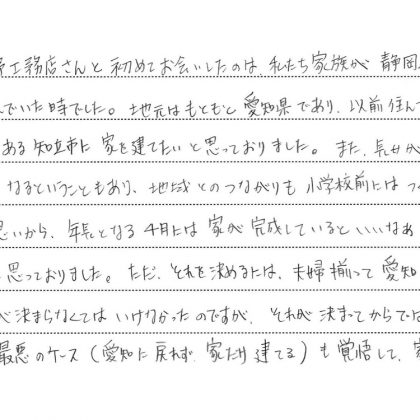 工務店さんと初めてお会いしたのは、私たち家族が静岡
でいた時でした。地元はもともと愛知県であり、以前住ん
ある知立市に家を建てたいと思っておりました。また、長女が
なるということもあり、地域とのつながりも小学校前にはつ
思いから、年長となる4月には家が完成しているといいなあ
思っておりました。ただ、それを決めるには、夫婦揃って愛知
決まらなくてはいけなかったのですが、それが決まってからでは
最悪のケース(愛知に戻れず、家だけ建てる)も覚悟して、